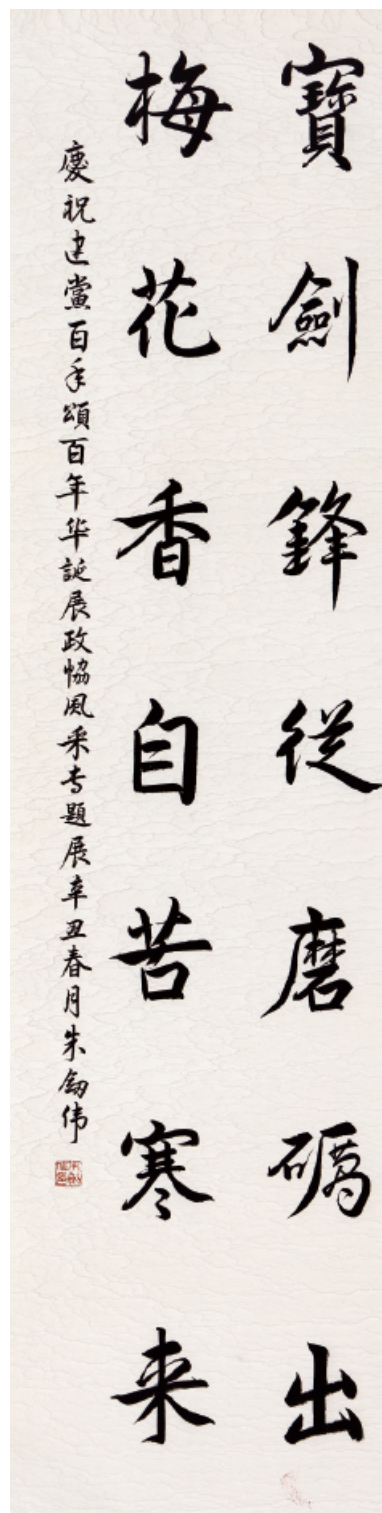 寶劍鋒從磨礪出
梅花香自苦寒来
慶祝建黨百年頌百年华誕展政協風采专題展辛丑春月朱劍伟